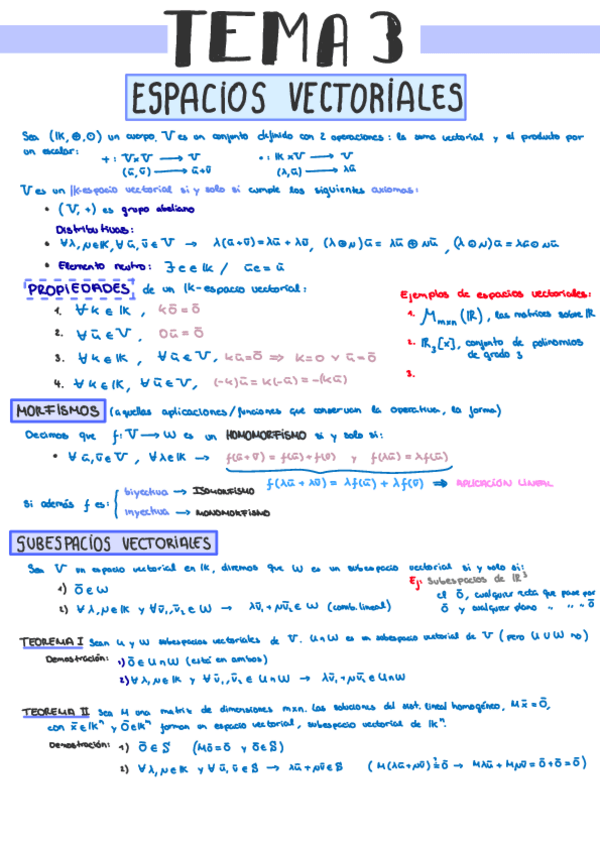 TEMA 3
ESPACIOS VECTORIALES
Sea (𝕂, ⊕, ⊙) un cuerpo, V es un conjunto definido con 2 operaciones: la suma vectorial y el producto por
un escalar: + : V×V → V • : 𝕂×V → V
(ū, v̄) → ū+v̄ (λ, ū) → λū
V es un 𝕂-espacio vectorial si y solo si cumple los siguientes axiomas:
• (V, +) es grupo abeliano
Distributivas:
• ∀ λ, μ ∈ 𝕂, ∀ ū, v̄ ∈ V → λ(ū+v̄) = λū + λv̄,
• Elemento neutro: ∃ e ∈ 𝕂 / ūe = ū
PROPIEDADES, de un 𝕂-espacio vectorial:
1. ∀ k ∈ 𝕂, kō = ō
2. ∀ ū ∈ V, 0ū = ō
3. ∀ k ∈ 𝕂, ∀ ū ∈ V, kū = ō ⇒ k = 0 ∨ ū = ō
4. ∀ k ∈ 𝕂, ∀ ū ∈ V, (-k)ū = k(-ū) = -(kū)
Ejemplos de espacios vectoriales:
1. M mxn (ℝ), las matrices sobre ℝ
2. ℝ₃[x], conjunto de polinomios
de grado 3
3.
MORFISMOS (aquellas aplicaciones/funciones que conservan la operativa, la forma)
Decimos que f: V → W es un HOMOMORFISMO si y solo si:
• ∀ ū, v̄ ∈ V, ∀ λ ∈ 𝕂 → f(ū+v̄) = f(ū) + f(v̄) y f(λū) = λf(ū)
f(λū + λv̄) = λf(ū) + λf(v̄) ⇒ APLICACIÓN LINEAL
Si además f es: { biyectiva → ISOMORFISMO
inyectiva → MONOMORFISMO
SUBESPACIOS VECTORIALES
Sea V un espacio vectorial en 𝕂, diremos que W es un subespacio vectorial si y solo si:
1) ō ∈ W
2) ∀ λ, μ ∈ 𝕂 y ∀ v̄₁, v̄₂ ∈ W → λv̄₁ + μv̄₂ ∈ W (comb. lineal)
Ej: Subespacios de ℝ³
el ō, cualquier recta que pase por
ō y cualquier plano " " " ō
TEOREMA I Sean U y W subespacios vectoriales de V. U∩W es un subespacio vectorial de V (pero U∪W no)
Demostración: 1) ō ∈ U∩W (está en ambos)
2) ∀ λ, μ ∈ 𝕂 y ∀ v̄₁, v̄₂ ∈ U∩W → λv̄₁ + μv̄₂ ∈ U∩W
TEOREMA II Sea M una matriz de dimensiones mxn. Las soluciones del sist. lineal homogéneo, Mx̄ = ō,
con x̄ ∈ 𝕂ⁿ y ō ∈ 𝕂ⁿ forman un espacio vectorial, subespacio vectorial de 𝕂ⁿ.
Demostración: 1) ō ∈ S (Mō = ō y ō ∈ S)
2) ∀ λ, μ ∈ 𝕂 y ∀ ū, v̄ ∈ S → λū + μv̄ ∈ S (M(λū+μv̄) ≟ ō → Mλū + Mμv̄ = ō + ō = ō)